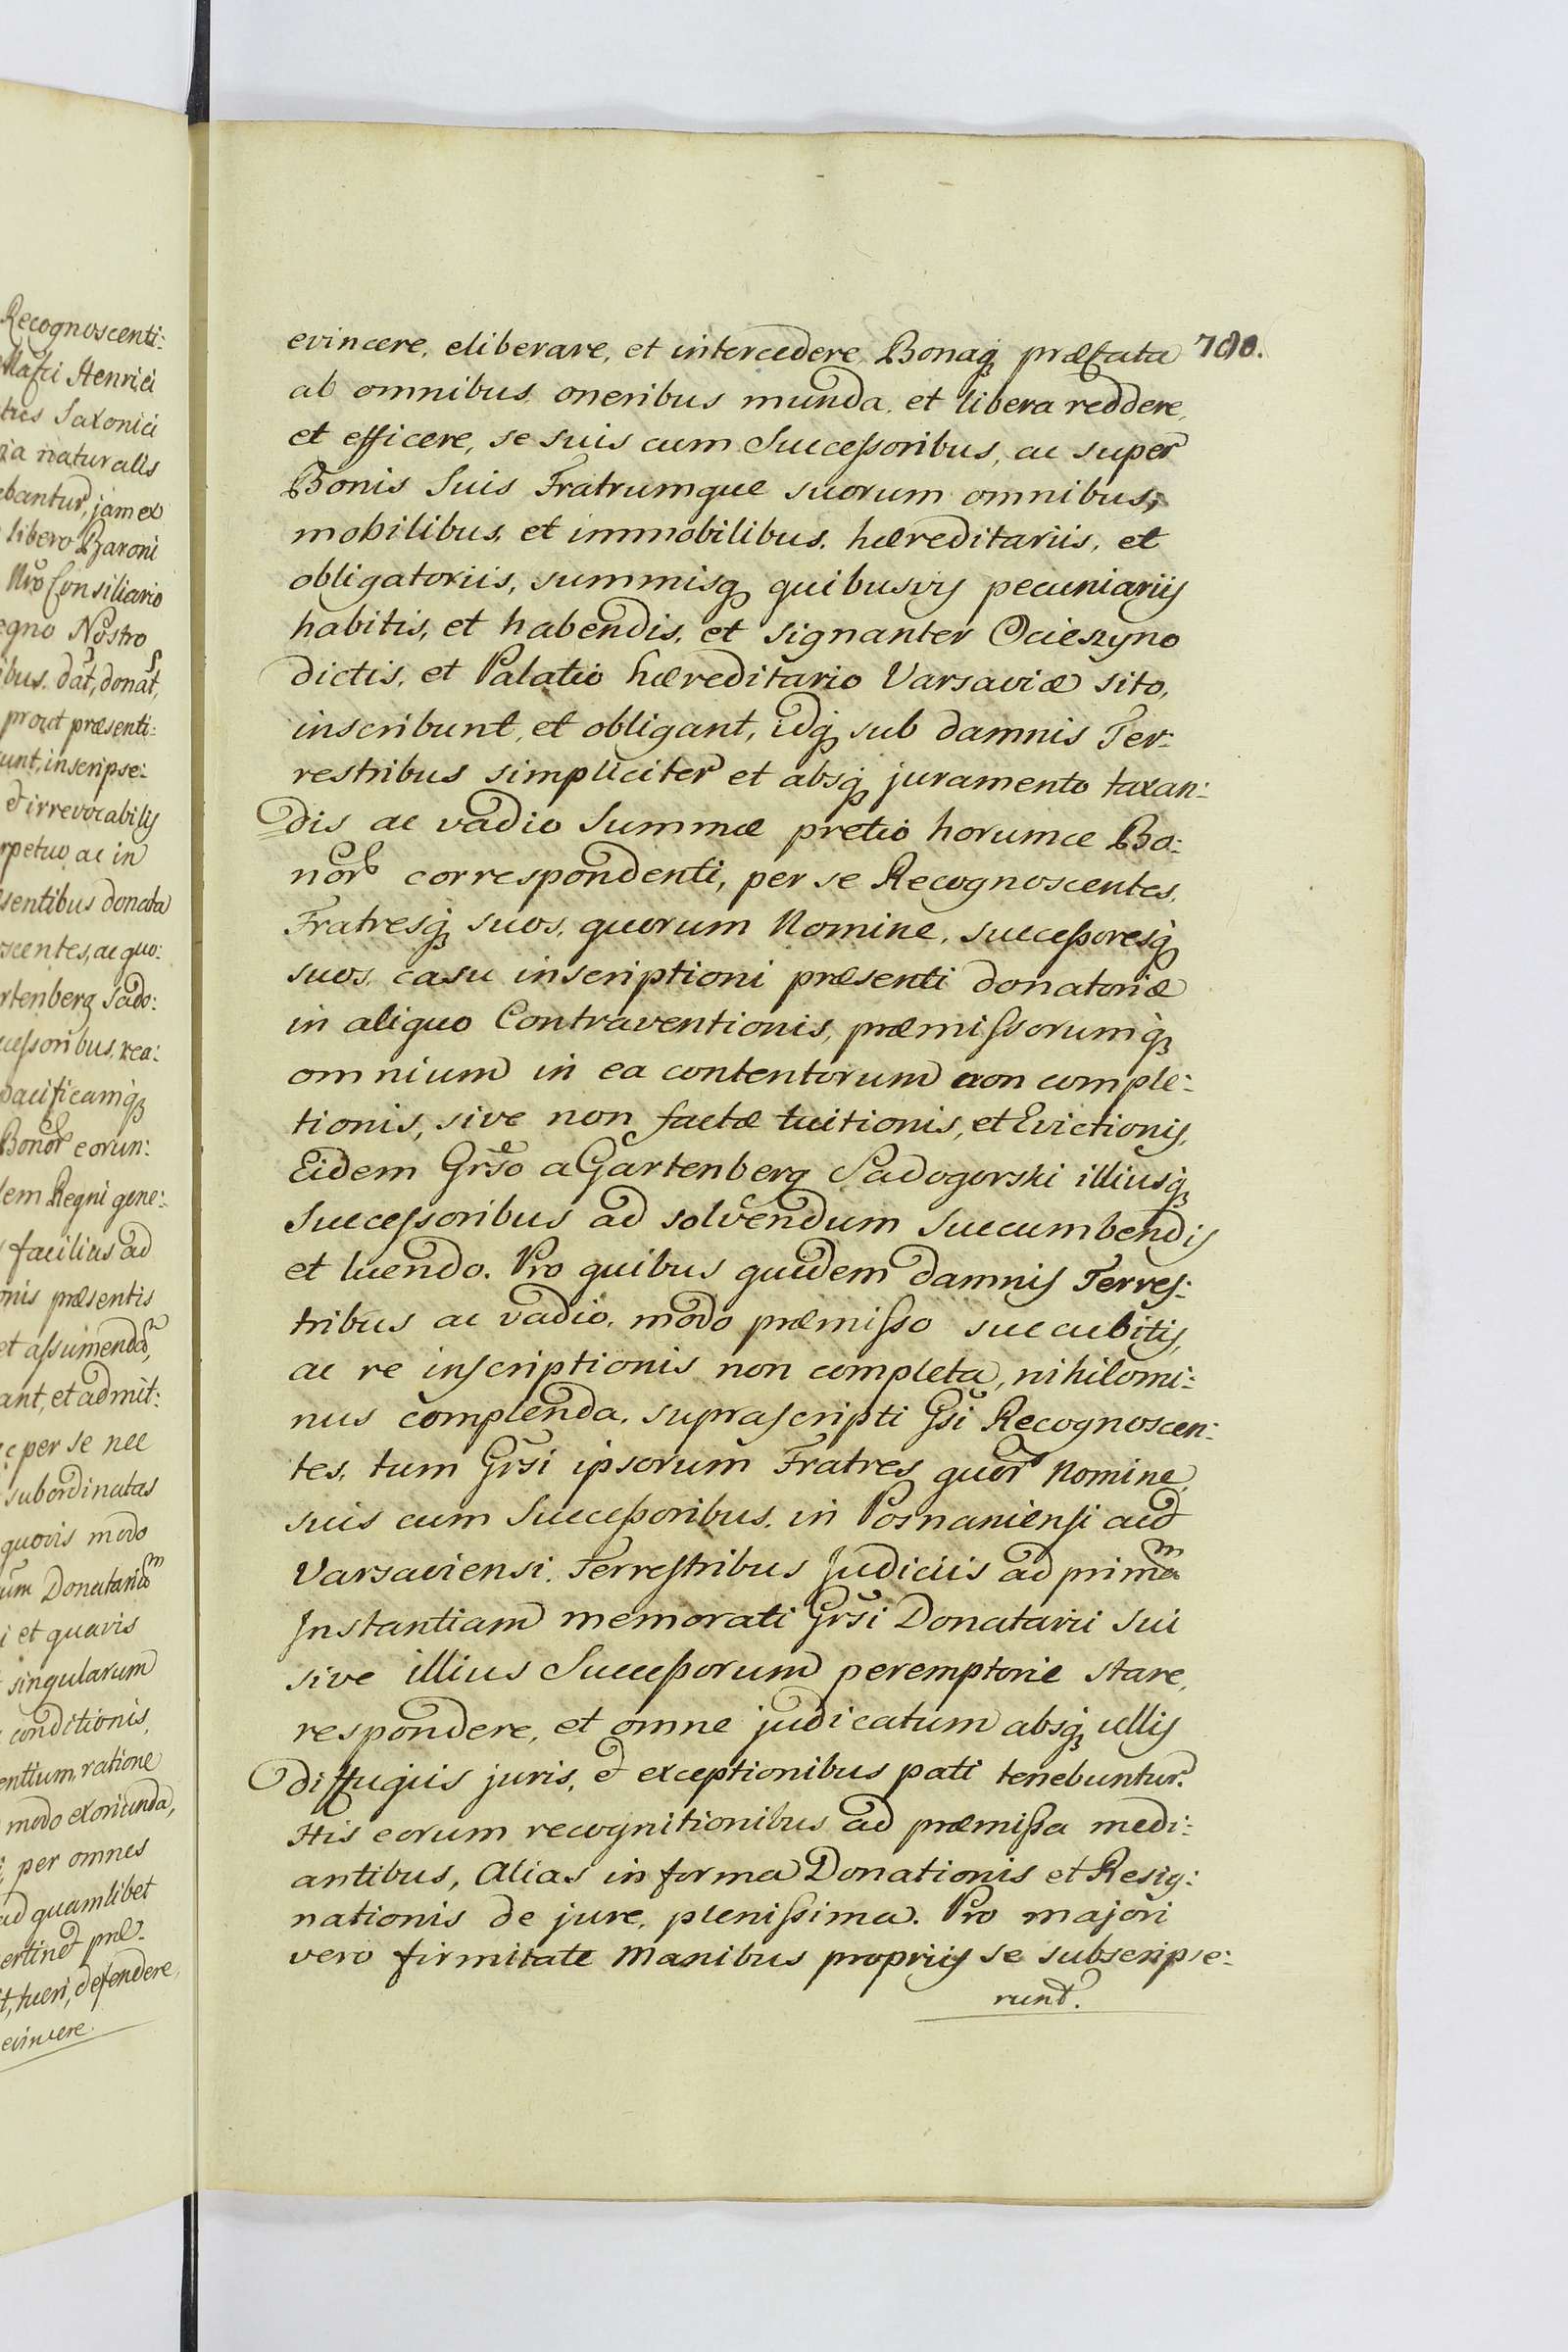 Recognoscenti:
Henrici
Saxonici
naturalis
ebantur, jam ex
libero Baroni
Nro Consiliario
egno Nostro
ibus. dat, donat,
prout præsenti:
unt, inscripse:
et irrevocabilis
rpetuo, ac in
sentibus donata
scentes, ac quo:
rtenberg Sado:
ccessoribus, rea:
pacificamq
Bonor eorun:
dem Regni gene:
facilius ad
onis præsentis
et assumendam,
ant, et admit:
per se nec
subordinatas
quovis modo
um Donatariom
i et quavis
singularum
conditionis,
entium, ratione
modo exoriunda,
per omnes
ad quamlibet
ertinet præ-
t, tueri, defendere,
evincere.
700.
evincere, eliberare, et intercedere, Bonaq præfata
ab omnibus, oneribus munda, et libera reddere,
et efficere, se suis cum Successoribus, ac super
Bonis Suis Fratrumque suorum omnibus,
mobilibus, et immobilibus, hæreditariis, et
obligatoriis, summisq quibusvis pecuniariis
habitis, et habendis, et signanter Ocieszyno
dictis, et Palatio hæreditario Varsaviæ sito,
inscribunt, et obligant, idq sub damnis Ter:
restribus simpliciter et absq juramento taxan:
dis ac vadio Summæ pretio horumce Bo:
nor correspondenti, per se Recognoscentes,
Fratresq suos, quorum Nomine, successoresq
suos, casu inscriptioni præsenti donatoriæ
in aliquo Contraventionis, præmissorumq
omnium in ea contentorum non comple:
tionis, sive non factæ tuitionis, et Evictionis,
Eidem Grso a Gartenberg Sadogorski illiusq
Successoribus ad solvendum succumbendis
et luendo. Pro quibus quidem damnis Terres:
tribus ac vadio, modo præmisso succubitis,
ac re inscriptionis non completa, nihilomi:
nus complenda, suprascripti Gsi Recognoscen:
tes, tum Grsi ipsorum Fratres quor Nomine,
suis cum Successoribus, in Posnaniensi aut
Varsaviensi Terrestribus Judiciis ad primam
Instantiam memorati Grsi Donatarii sui
sive illius Successorum peremptorie stare,
respondere, et omne judicatum absq ullis
diffugiis juris, et exceptionibus pati tenebuntur.
His eorum recognitionibus ad præmissa medi:
antibus, Alias in forma Donationis et Resig:
nationis de jure, plenissima. Pro majori
vero firmitate Manibus propriis se subscripse:
runt.